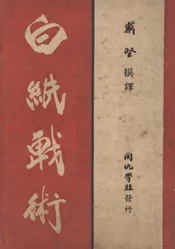 戴坚 撰譯
同仇學社發行
白紙戰術